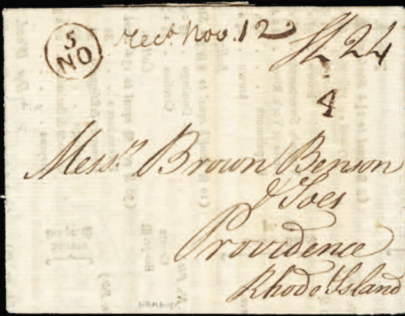 5
NO
recd Nov. 12
24
4
Messrs Brown Benson
& Ives
Providence
Rhode Island